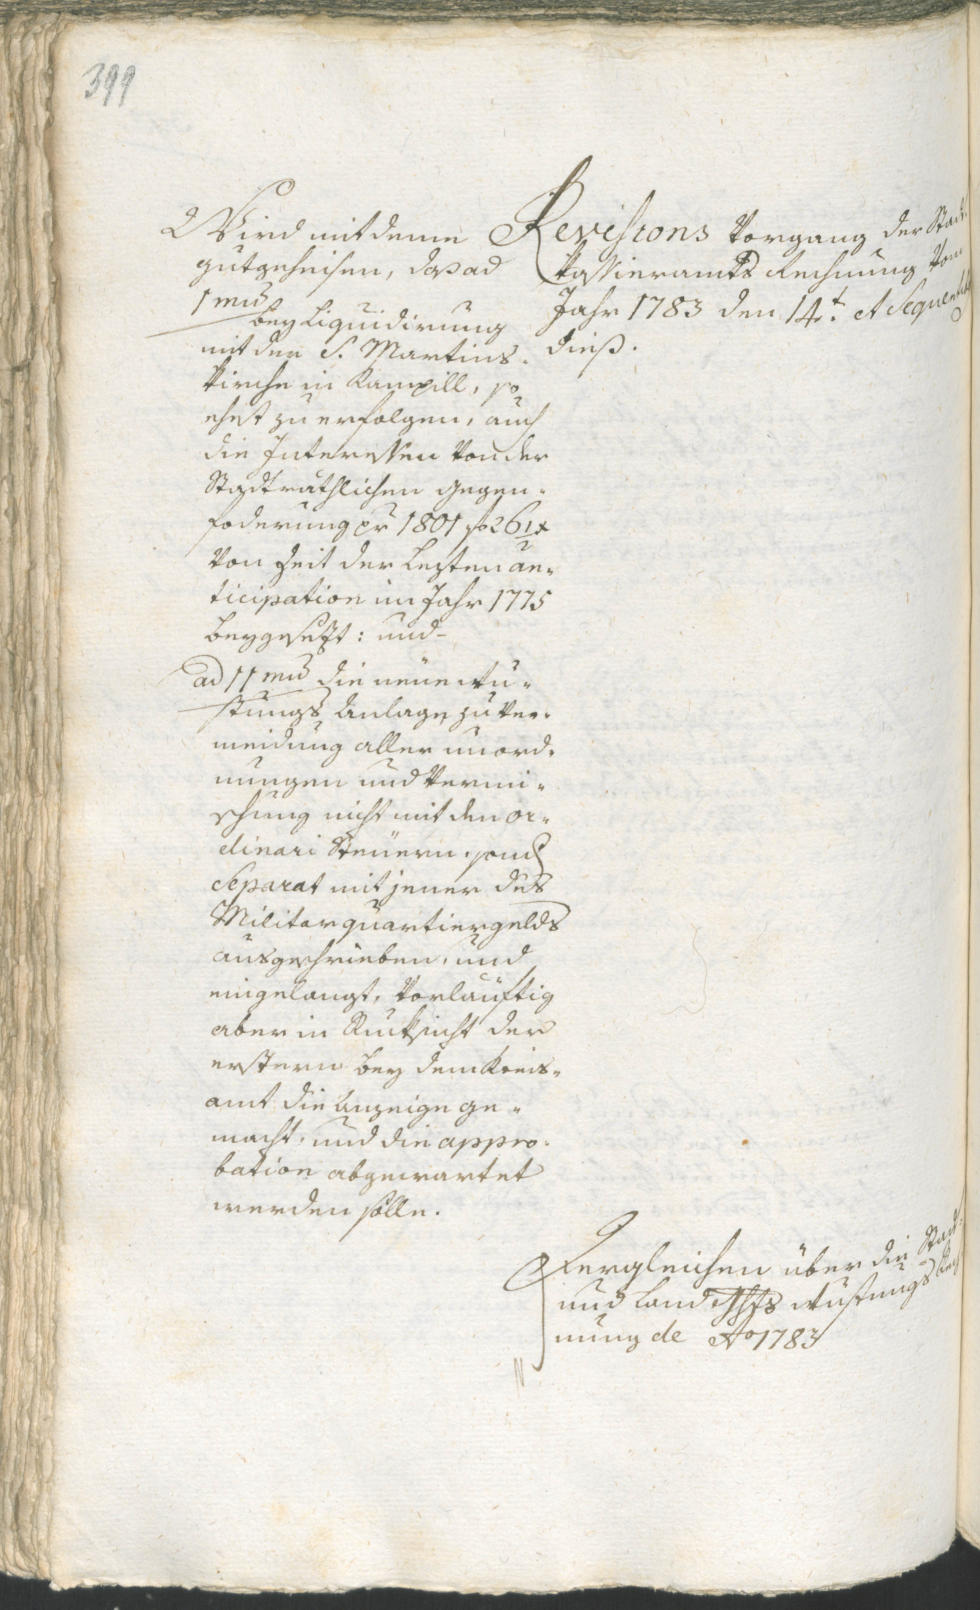 399
Wird mit deme
gutgeheisen, daß ad
1mum
bey Liquidirung
mit der S. Martins-
kirche in Kampill, so
ehest zu erfolgen, auch
die Interessen von der
Stadträthlichen Gegen-
foderung pr 1801 f 26 1 x
von Zeit der lezten an-
ticipation im Jahr 1775
beygesezt: und
ad 11mum die neüe Wu-
stungs Anlage zu Ver-
meidung aller unord-
nungen und Vermi-
schung nicht mit den or-
dinari Steüern, sond
Separat mit jener des
Militarquartiergelds
ausgeschrieben, und
eingelangt, vorläufftig
aber in Rucksicht der
erstern bey dem Kreis-
amt die Anzeige ge-
macht, und die appro-
bation abgewartet
werden solle.
Revisions Vorgang der Stadt
Kassieramts Rechnung vom
Jahr 1783 den 14t. et Sequent
dieß.
Vergleichen über die Stadt-
und Land Wustungs Rech
nung de Ao 1783